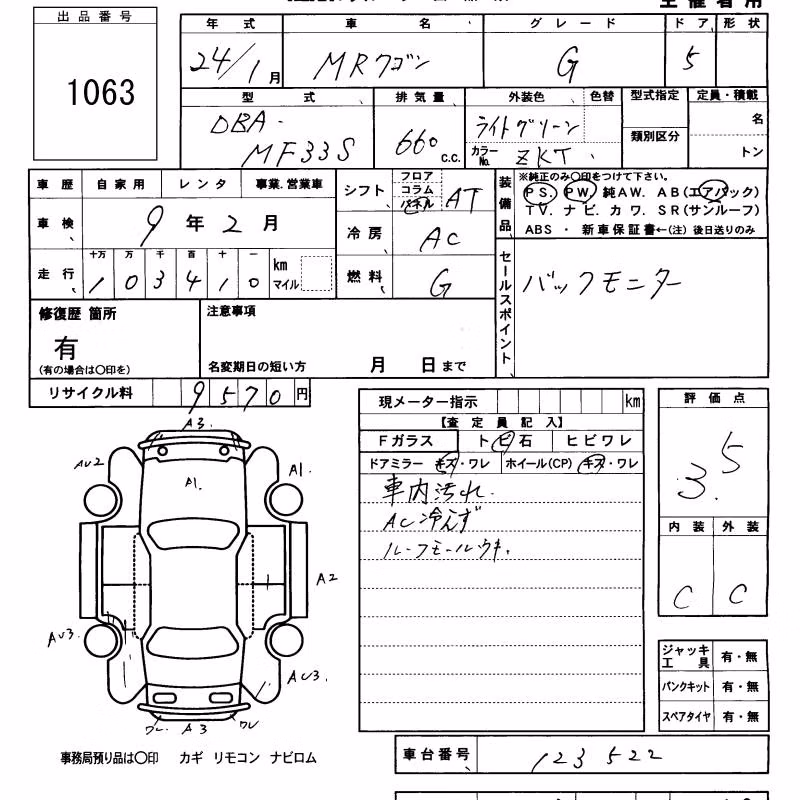 主催者用
出品番号
1063
年式 車名 グレード ドア 形状
24/1月 MRワゴン G 5
型式 排気量 外装色 色替 型式指定 定員・積載
DBA- 名
MF33S 660 c.c. ライトグリーン 類別区分
カラーNo. ZKT トン
車歴 自家用 レンタ 事業.営業車
車検 9年2月
走行 十万 万 千 百 十 一 km マイル
1 0 3 4 1 0
シフト フロア コラム パネル AT
冷房 AC
燃料 G
装備品 ※純正のみ〇印をつけて下さい。
PS. PW. 純AW. AB(エアバック)
TV. ナビ. カワ. SR(サンルーフ)
ABS ・ 新車保証書←(注) 後日送りのみ
セールスポイント バックモニター
修復歴 箇所 注意事項
有
(有の場合は〇印を) 名変期日の短い方 月 日まで
リサイクル料 9570円
現メーター指示 km
【査定員記入】
Fガラス トビ石 ヒビワレ
ドアミラー キズ・ワレ ホイール(CP) キズ・ワレ
車内汚れ.
AC冷えず
ルーフモールウキ.
評価点
3.5
内装 外装
C C
A3.
AU2 A1. A1.
A2
AU3. AU3
ワレ A3 ワレ
ジャッキ工具 有・無
パンクキット 有・無
スペアタイヤ 有・無
事務局預り品は〇印 カギ リモコン ナビロム
車台番号 123522